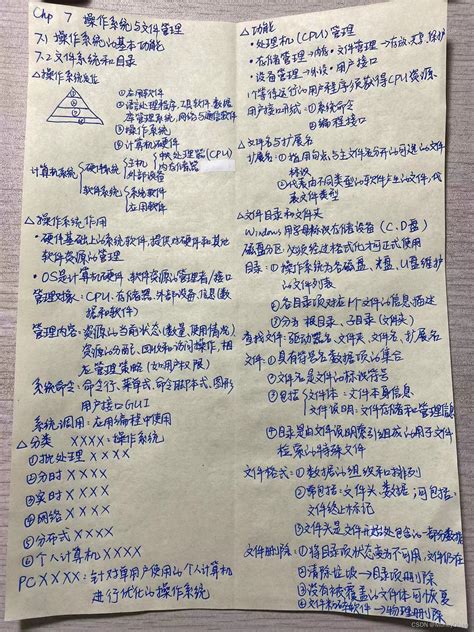 Chp 7 操作系统与文件管理
7.1 操作系统的基本功能
7.2 文件系统和目录
△操作系统定位
①应用软件
②语言处理程序,工具软件,数据
库管理系统,网络与通信软件
③操作系统
④计算机硬件
计算机系统 硬件系统 主机 中央处理器(CPU)
内存储器
外部设备
软件系统 系统软件
应用软件
△操作系统作用
·硬件基础上的系统软件,提供对硬件和其他
软件资源的管理
·OS是计算机硬件、软件资源的管理者/接口
管理对象:CPU、存储器、外部设备、信息(数
据和软件)
管理内容:资源的当前状态(数量、使用情况)
资源的分配、回收和访问操作,相
应管理策略(如用户权限)
系统命令:命令行、菜单式、命令脚本式、图形
用户接口GUI
系统调用:在编程中使用
△分类 XXXX:操作系统
①批处理XXXX
②分时XXXX
③实时XXXX
④网络XXXX
⑤分布式XXXX
⑥个人计算机XXXX
PCXXXX:针对单用户使用的个人计算机
进行优化的操作系统
△功能
·处理机(CPU)管理
·存储管理→内存·文件管理→存放,共享,保护
·设备管理→外设·用户接口
1个等待运行的用户程序须获得CPU资源
用户接口形式:①系统命令
②编程接口
△文件名与扩展名
扩展名:①指用句点与主文件名分开的可选的文件
标识
②代表由不同类型的软件产生的文件,代
表文件类型
△文件目录和文件夹
Windows用字母标识存储设备(C、D盘)
磁盘分区必须经过格式化才可正式使用
目录:①操作系统为各磁盘、光盘、U盘维护
的文件列表
①各目录项对应1个文件的信息描述
②分为 根目录、子目录(文件夹)
查找文件:驱动器名、文件夹、文件名、扩展名
文件:①具有符号名数据项的集合
②文件名是文件的标识符号
③包括 文件体:文件本身信息
文件说明:文件存储和管理信息
④目录是由文件说明索引组成的用于文件
检索的特殊文件
文件格式:①数据的组织和排列
②要包括:文件头、数据,可包括:
文件终止标记
③文件头是文件开始处包含的一部分数据
文件删除:①将目录项状态变为不可用,文件仍在
②清除垃圾→目录项删除
③没有被覆盖的文件体可恢复
④文件粉碎软件→物理删除